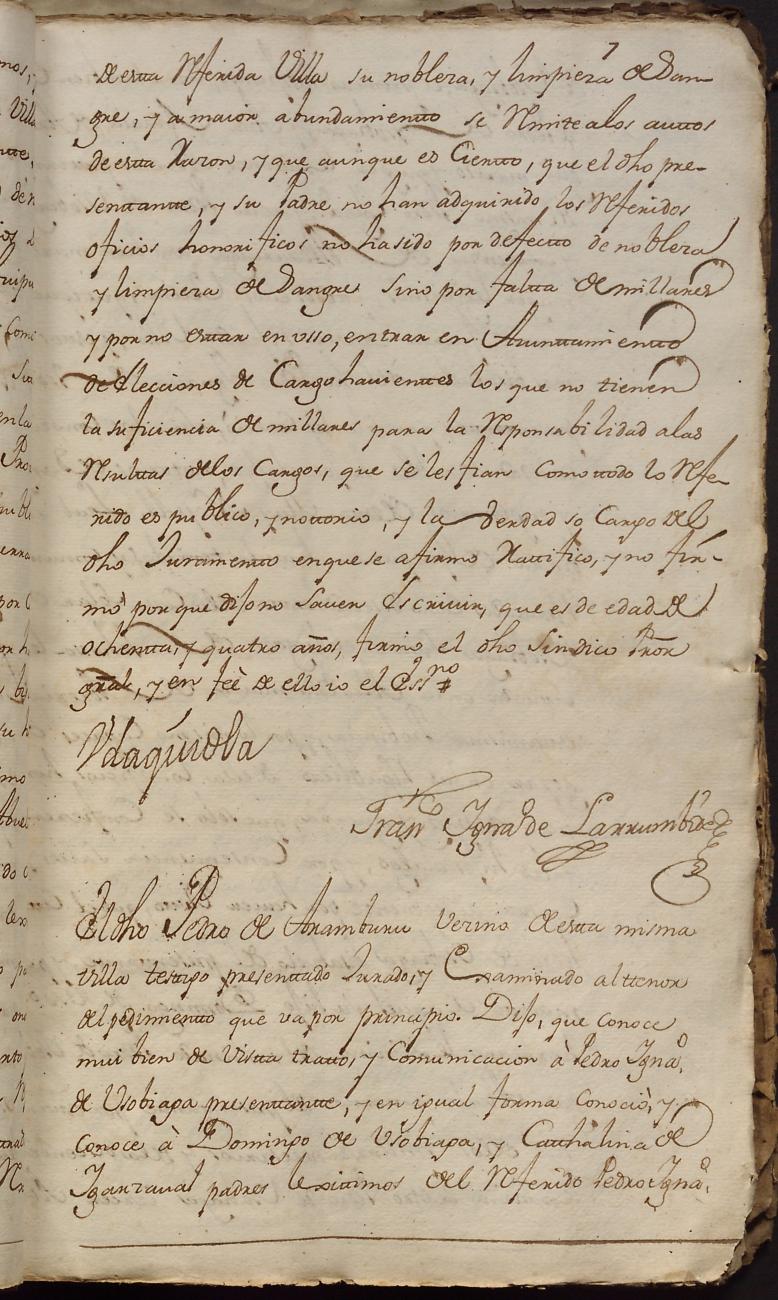 7
de esta Referida Villa su nobleza, y limpieza de San-
gre, y a maior abundamiento se Remite a los auttos
de esta Razon, y que aunque es Ciertto, que el dho pre-
senttante, y su Padre no han adquirido los Referidos
oficios honorificos no ha sido por defectto de nobleza
y limpieza de Sangre sino por faltta de millares
y por no esttar en usso, entrar en Aiunttamientto
de Elecciones de Cargohavienttes los que no tienen
la suficiencia de millares para la Responsabilidad a las
Resulttas de los Cargos, que se les fian como ttodo lo Refe-
rido es publico, y nottorio, y la Verdad so Cargo del
dho Juramentto en que se afirmo Rattifico, y no fir-
mò por que dijo no Saver Escrivir, que es de edad de
ochentta, y quatro años, firmo el dho Sindico Pror
gral, y en feè de ello io el Essno
Vdaquiola
Frann Ignao de Larrumbide
El dho Pedro de Aramburu Vezino de estta misma
villa testigo presenttado Jurado, y Examinado al ttenor
del pedimientto que va por principio. Dijo, que conoce
mui bien de Vistta tratto, y Comunicacion à Pedro Ignao
de Vsobiaga presenttante, y en igual forma Conociò, y
Conoce à Domingo de Vsobiaga, y Catthalina de
Iganzaval padres lexittimos del Referido Pedro Ignao